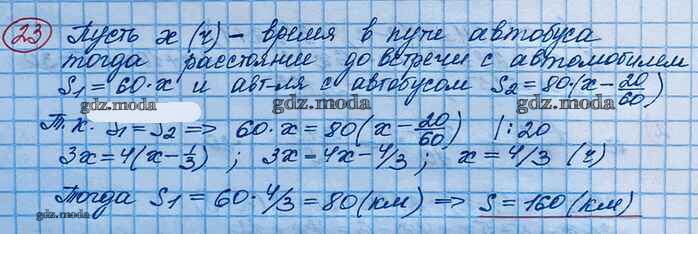 23 Пусть x (ч) – время в пути автобуса
тогда расстояние до встречи с автомобилем
S₁ = 60·x и авт-ля с автобусом S₂ = 80·(x – 20/60)
gdz.moda gdz.moda gdz.moda
Т.к. S₁ = S₂ => 60·x = 80(x – 20/60) |:20
3x = 4(x – 1/3) ; 3x = 4x – 4/3 ; x = 4/3 (ч)
gdz.moda gdz.moda
Тогда S₁ = 60·4/3 = 80 (км) => S = 160 (км)
gdz.moda gdz.moda